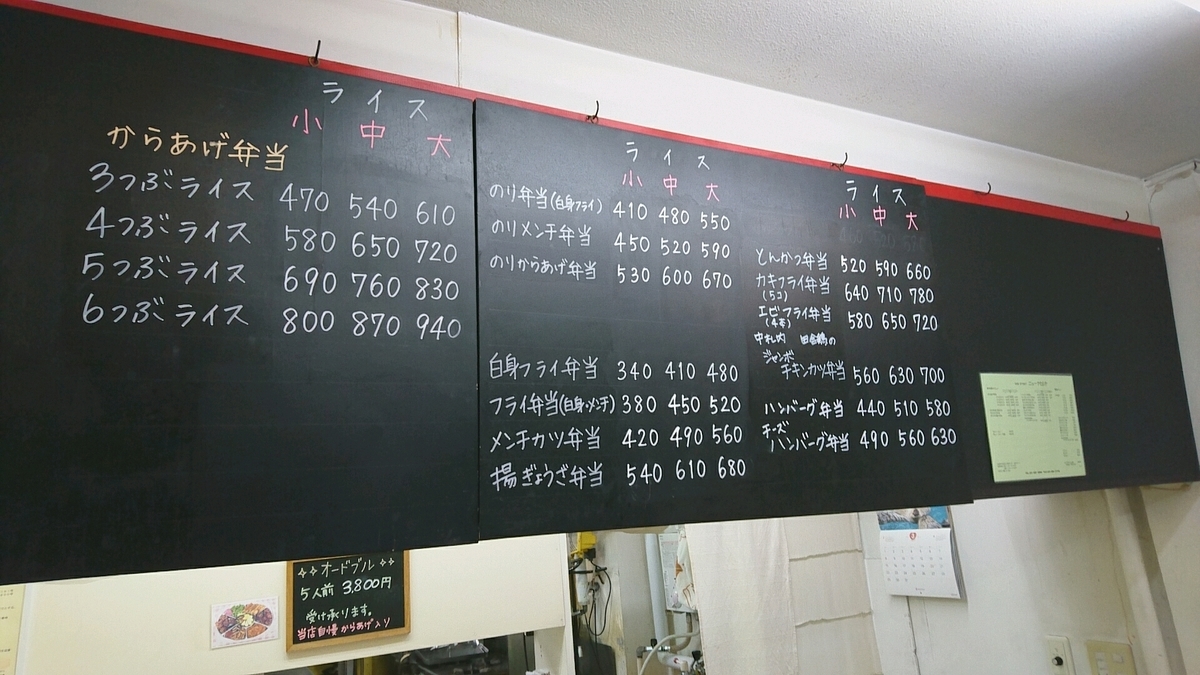 ライス
小 中 大
からあげ弁当
3つぶライス 470 540 610
4つぶライス 580 650 720
5つぶライス 690 760 830
6つぶライス 800 870 940
ライス
小 中 大
のり弁当(白身フライ) 410 480 550
のりメンチ弁当 450 520 590
のりからあげ弁当 530 600 670
白身フライ弁当 340 410 480
フライ弁当(白身・メンチ) 380 450 520
メンチカツ弁当 420 490 560
揚ぎょうざ弁当 540 610 680
ライス
小 中 大
とんかつ弁当 520 590 660
カキフライ弁当 640 710 780
(5コ)
エビフライ弁当 580 650 720
(4本)
中札内 田舎鶏の
ジャンボ
チキンカツ弁当 560 630 700
ハンバーグ弁当 440 510 580
チーズ
ハンバーグ弁当 490 560 630
オードブル
5人前 3,800円
受け承ります。
当店自慢からあげ入り